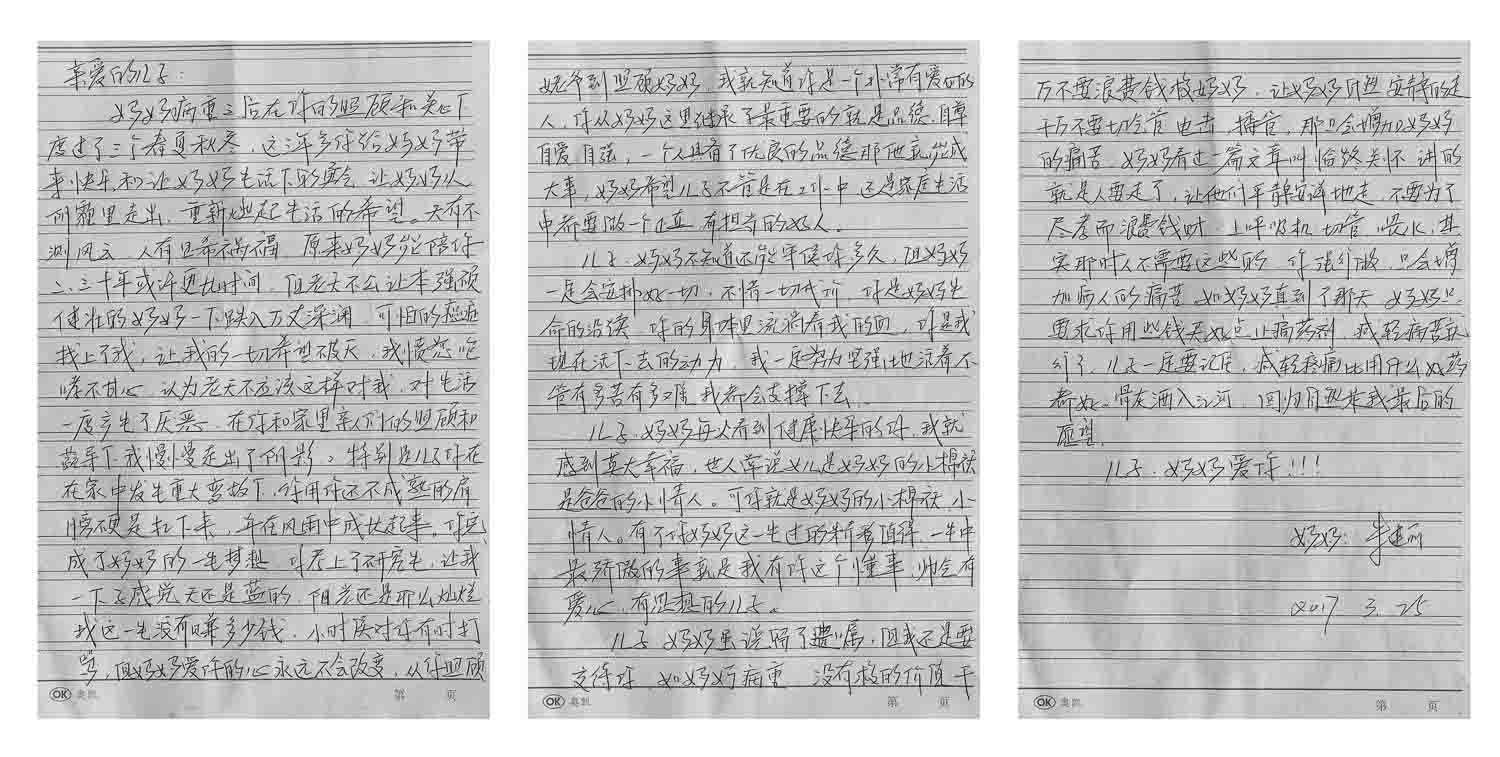 亲爱的儿子：
妈妈病重之后在你的照顾和关心下
度过了三个春夏秋冬，这三年多你给妈妈带
来快乐和让妈妈生活下的 让妈妈从
阴霾里走出，重新燃起生活的希望。天有不
测风云，人有旦希祸福，原来妈妈能陪你
二、三十年或许更长时间，但老天不公让本强硕
健壮的妈妈一下跌入万丈深渊，可怕的癌症
找上了我，让我的一切希望破灭，我愤怒咆
哮不甘心，认为老天不应该这样对我，对生活
一度产生了厌恶，在你和家里亲人们的照顾和
疏导下我慢慢走出了阴影，特别是儿子你在
在家中发生重大变故下，你用你还不成熟的肩
膀硬是扛下来，并在风雨中成长起来。你完
成了妈妈的一生梦想，你考上了研究生，让我
一下子感觉天还是蓝的，阳光还是那么灿烂
我这一生没有赚多少钱，小时候对你有时打
骂，但妈妈爱你的心永远不会改变，从你照顾
姥爷到照顾妈妈，我就知道你是一个非常有爱心的
人，你从妈妈这里继承了最重要的就是品德，自尊
自爱自强，一个人具有了优良的品德那他就能成
大事，妈妈希望儿子不管是在工作中还是家庭生活
中都要做一个正直有担当的好人。
儿子，妈妈不知道还能守候你多久，但妈妈
一定会安排好一切，不惜一切代价，你是妈妈生
命的沿续，你的身体里流淌着我的血，你是我
现在活下去的动力，我一定努力坚强地活着不
管有多苦有多难我都会支撑下去。
儿子，妈妈每次看到健康快乐的你，我就
感到莫大幸福，世人常说女儿是妈妈的小棉袄
是爸爸的小情人。可你就是妈妈的小棉袄，小
情人。有了你妈妈这一生过的精彩值得，一生中
最骄傲的事就是我有你这个懂事，帅气有
爱心，有思想的儿子。
儿子妈妈虽说写了遗嘱，但我还是要
支待你，如妈妈病重，没有救的价值千
万不要浪费钱救妈妈，让妈妈自然安静的走
千万不要切管电击，插管，那只会增加妈妈
的痛苦，妈妈看过一篇文章叫临终关怀讲的
就是人要走了，让他们平静安详地走，不要为了
尽孝而浪费钱财，上呼吸机切管，喂水，其
实那时人不需要这些的 你强行做，只会增
加病人的痛苦 如妈妈真到了那天，妈妈只
要求你用些钱买好点止痛药剂，减轻病苦就
行了，儿子一定要记住，减轻疼痛比用什么好药
都好。骨灰洒入江河，回归自然是我最后的
愿望。
儿子，妈妈爱你！！！
妈妈：
2017 3. 25
OK 奥凯 第 页
OK 奥凯 第 页
OK 奥凯 第 页